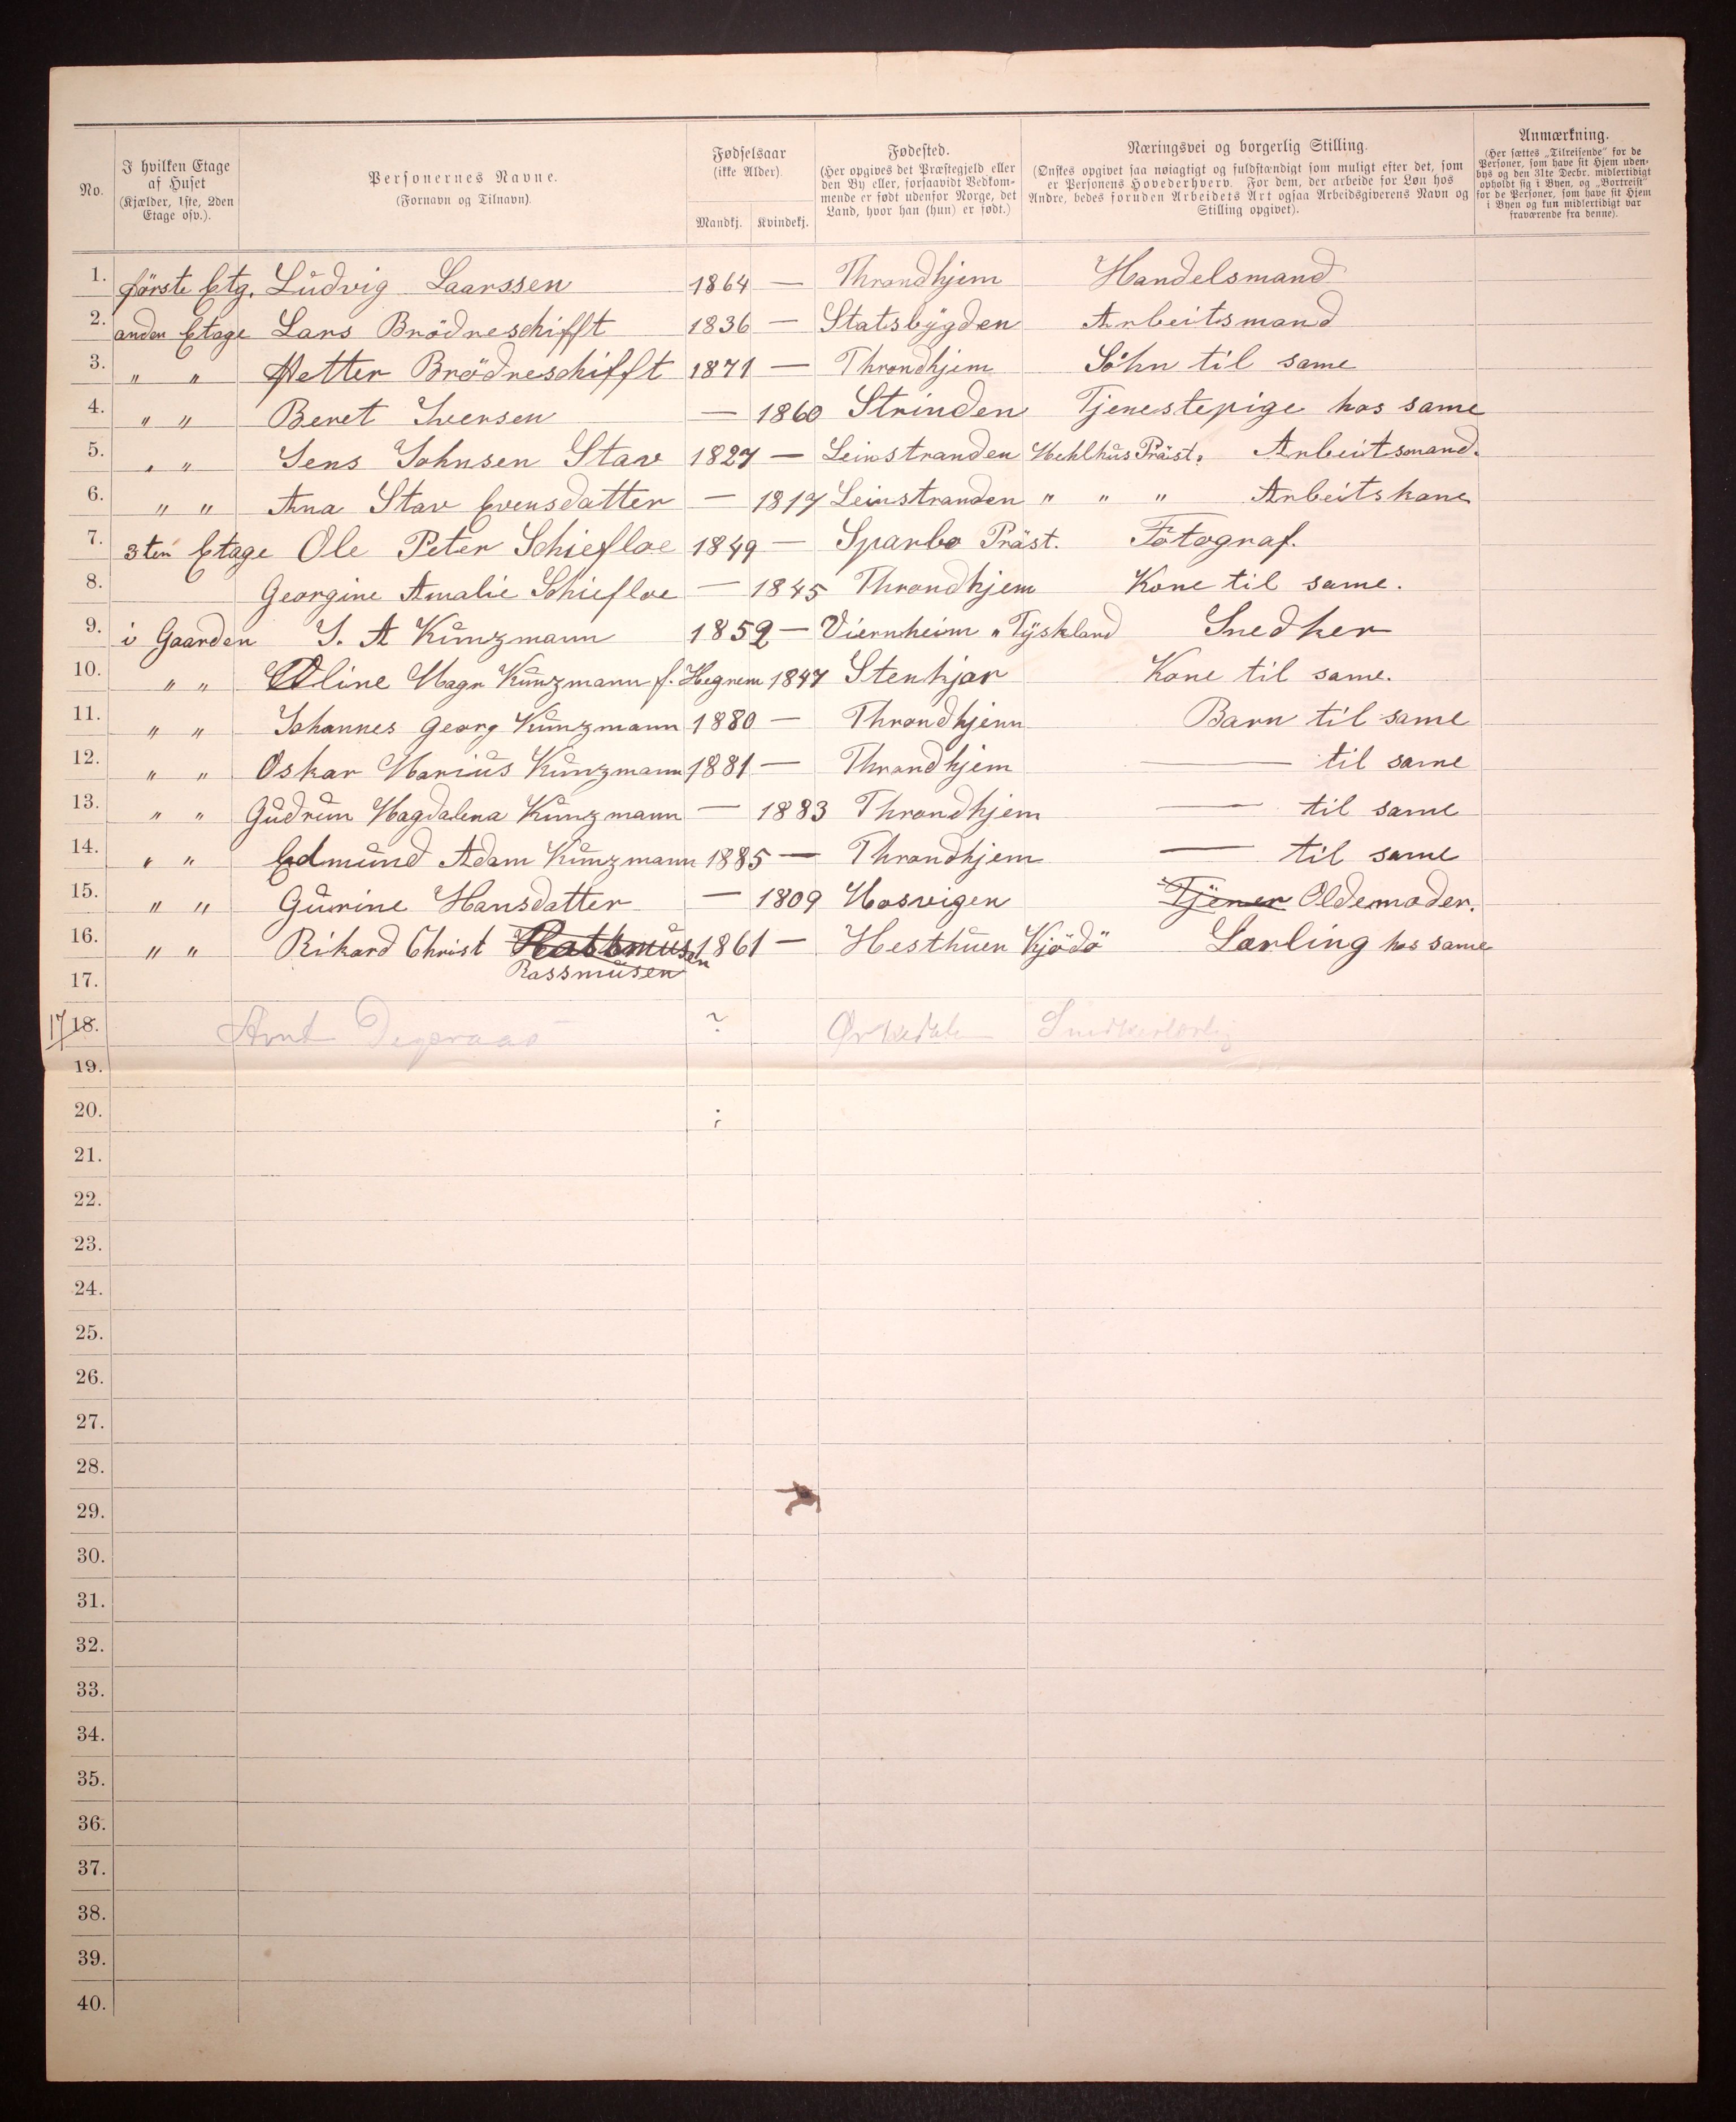 No.
I hvilken Etage
af Huset
(Kjælder, 1ste, 2den
Etage osv.).
Personernes Navne.
(Fornavn og Tilnavn).
Fødselsaar
(ikke Alder).
Mandkj. Kvindekj.
Fødested.
(Her opgives det Præstegjeld eller
den By eller, forsaavidt Vedkom-
mende er født udenfor Norge, det
Land, hvor han (hun) er født.)
Næringsvei og borgerlig Stilling.
(Ønskes opgivet saa nøiagtigt og fuldstændigt som muligt efter det, som
er Personens Hovederhverv. For dem, der arbeide for Løn hos
Andre, bedes foruden Arbeidets Art ogsaa Arbeidsgiverens Navn og
Stilling opgivet).
Anmærkning.
(Her sættes „Tilreisende" for de
Personer, som have sit Hjem uden-
bys og den 31te Decbr. midlertidigt
opholdt sig i Byen, og „Bortreist"
for de Personer, som have sit Hjem
i Byen og kun midlertidigt var
fraværende fra denne).
1. förste Etg. Ludvig Laarssen 1864 — Throndhjem Handelsmand
2. anden Etage Lars Brödreschifft 1836 — Statsbygden Arbeitsmand
3. " " Petter Brödreschifft 1871 — Throndhjem Söhn til same
4. " " Beret Iversen — 1860 Strinden Tjenestepige hos same
5. " " Jens Johnsen Stav 1827 — Leinstranden Mehlhus Präst. Arbeitsmand.
6. " " Ana Stav Evensdatter — 1817 Leinstranden " " " Arbeitskone
7. 3ten Etage Ole Peter Schiefloe 1849 — Sparbo Präst. Fotograf.
8. Georgine Amalie Schiefloe — 1845 Throndhjem Kone til same.
9. i Gaarden J. A Kunzmann 1852 — Viernheim " Tyskland Snedker
10. " " Oline Magr Kunzmann f. Hegrem 1847 Stenkjar Kone til same.
11. " " Johannes Georg Kunzmann 1880 — Throndhjem Barn til same
12. " " Oskar Marius Kunzmann 1881 — Throndhjem — til same
13. " " Gudrun Magdalena Kunzmann — 1883 Throndhjem — til same
14. " " Edmund Adam Kunzmann 1885 — Throndhjem — til same
15. " " Gurine Hansdatter — 1809 Mosvigen Tjener Oldemoder.
16. " " Rikard Christ Rassmusen 1861 — Hesthuen Kjödö Lærling hos same
Rassmusen
17.
17 18. Arnt ? Ørkedale
19.
20.
21.
22.
23.
24.
25.
26.
27.
28.
29.
30.
31.
32.
33.
34.
35.
36.
37.
38.
39.
40.